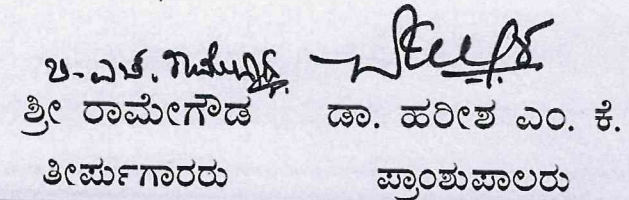 ಶ್ರೀ ರಾಮೇಗೌಡ ಡಾ. ಹರೀಶ ಎಂ. ಕೆ.
ತೀರ್ಪುಗಾರರು ಪ್ರಾಂಶುಪಾಲರು